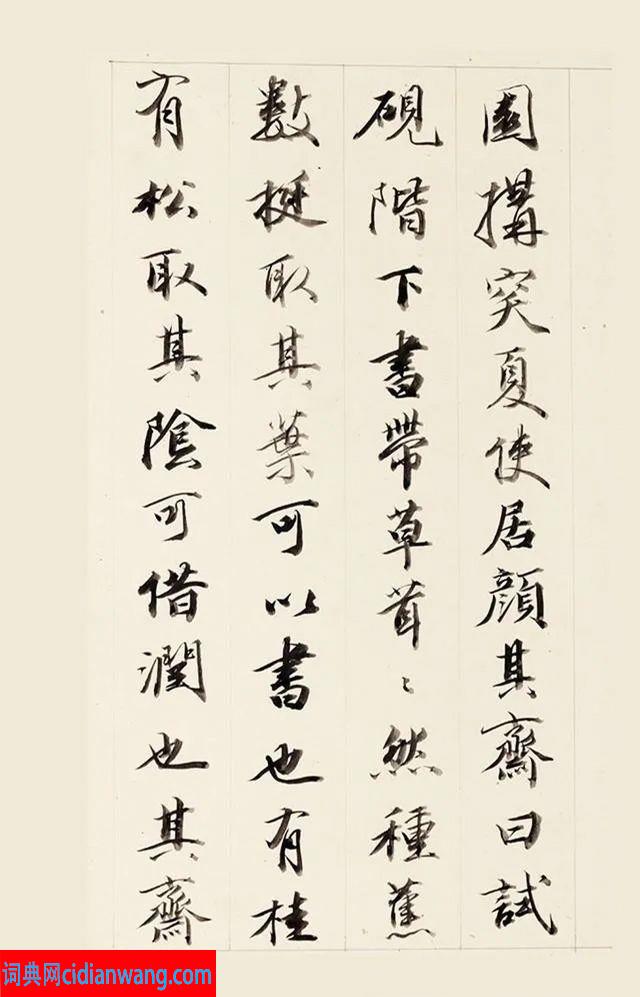 園搆突夏使居顔其齋曰試
硯階下書帶草茸〻然種蕉
數挺取其葉可以書也有桂
有松取其陰可借潤也其齋
词典网cidianwang.com